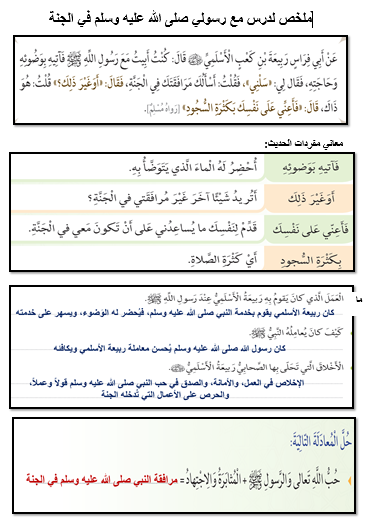 ملخص لدرس مع رسولي صلى الله عليه وسلم في الجنة
عَنْ أَبِي فِرَاسٍ رَبِيعَةَ بْنِ كَعْبٍ الْأَسْلَمِيِّ ﷺ قَالَ: كُنْتُ أَبِيتُ مَعَ رَسُولِ اللَّهِ ﷺ فَآتِيهِ بِوَضُوئِهِ
وَحَاجَتِهِ، فَقَالَ لِي: «سَلْنِي»، فَقُلْتُ: أَسْأَلُكَ مُرَافَقَتَكَ فِي الْجَنَّةِ، فَقَالَ: «أَوَغَيْرَ ذَلِكَ؟» قُلْتُ: هُوَ
ذَاكَ، قَالَ: «فَأَعِنِّي عَلَى نَفْسِكَ بِكَثْرَةِ السُّجُودِ» [رَوَاهُ مُسْلِمٌ].
معاني مفردات الحديث:
فَآتِيهِ بِوَضُوئِهِ أُحْضِرُ لَهُ الْمَاءَ الَّذِي يَتَوَضَّأُ بِهِ.
أَوَغَيْرَ ذَلِكَ أَتُرِيدُ شَيْئًا آخَرَ غَيْرَ مُرَافَقَتِي فِي الْجَنَّةِ؟
فَأَعِنِّي عَلَى نَفْسِكَ قَدِّمْ لِنَفْسِكَ مَا يُسَاعِدُنِي عَلَى أَنْ تَكُونَ مَعِي فِي الْجَنَّةِ.
بِكَثْرَةِ السُّجُودِ أَيْ كَثْرَةِ الصَّلَاةِ.
الْعَمَلَ الَّذِي كَانَ يَقُومُ بِهِ رَبِيعَةُ الْأَسْلَمِيُّ عِنْدَ رَسُولِ اللَّهِ ﷺ.
كان ربيعة الأسلمي يقوم بخدمة النبي صلى الله عليه وسلم، فيُحضر له الوضوء، ويسهر على خدمته
كَيْفَ كَانَ يُعَامِلُهُ النَّبِيُّ ﷺ.
كان رسول الله صلى الله عليه وسلم يُحسن معاملة ربيعة الأسلمي ويكافئه
الْأَخْلَاقَ الَّتِي تَحَلَّى بِهَا الصَّحَابِيُّ رَبِيعَةُ الْأَسْلَمِيُّ
الإخلاص في العمل، والأمانة، والصدق في حب النبي صلى الله عليه وسلم قولاً وعملاً،
والحرص على الأعمال التي تُدخله الجنة
حُلَّ الْمُعَادَلَةَ التَّالِيَةَ:
حُبُّ اللَّهِ تَعَالَى وَالرَّسُولِ ﷺ + الْمُثَابَرَةُ وَالِاجْتِهَادُ = مرافقة النبي صلى الله عليه وسلم في الجنة